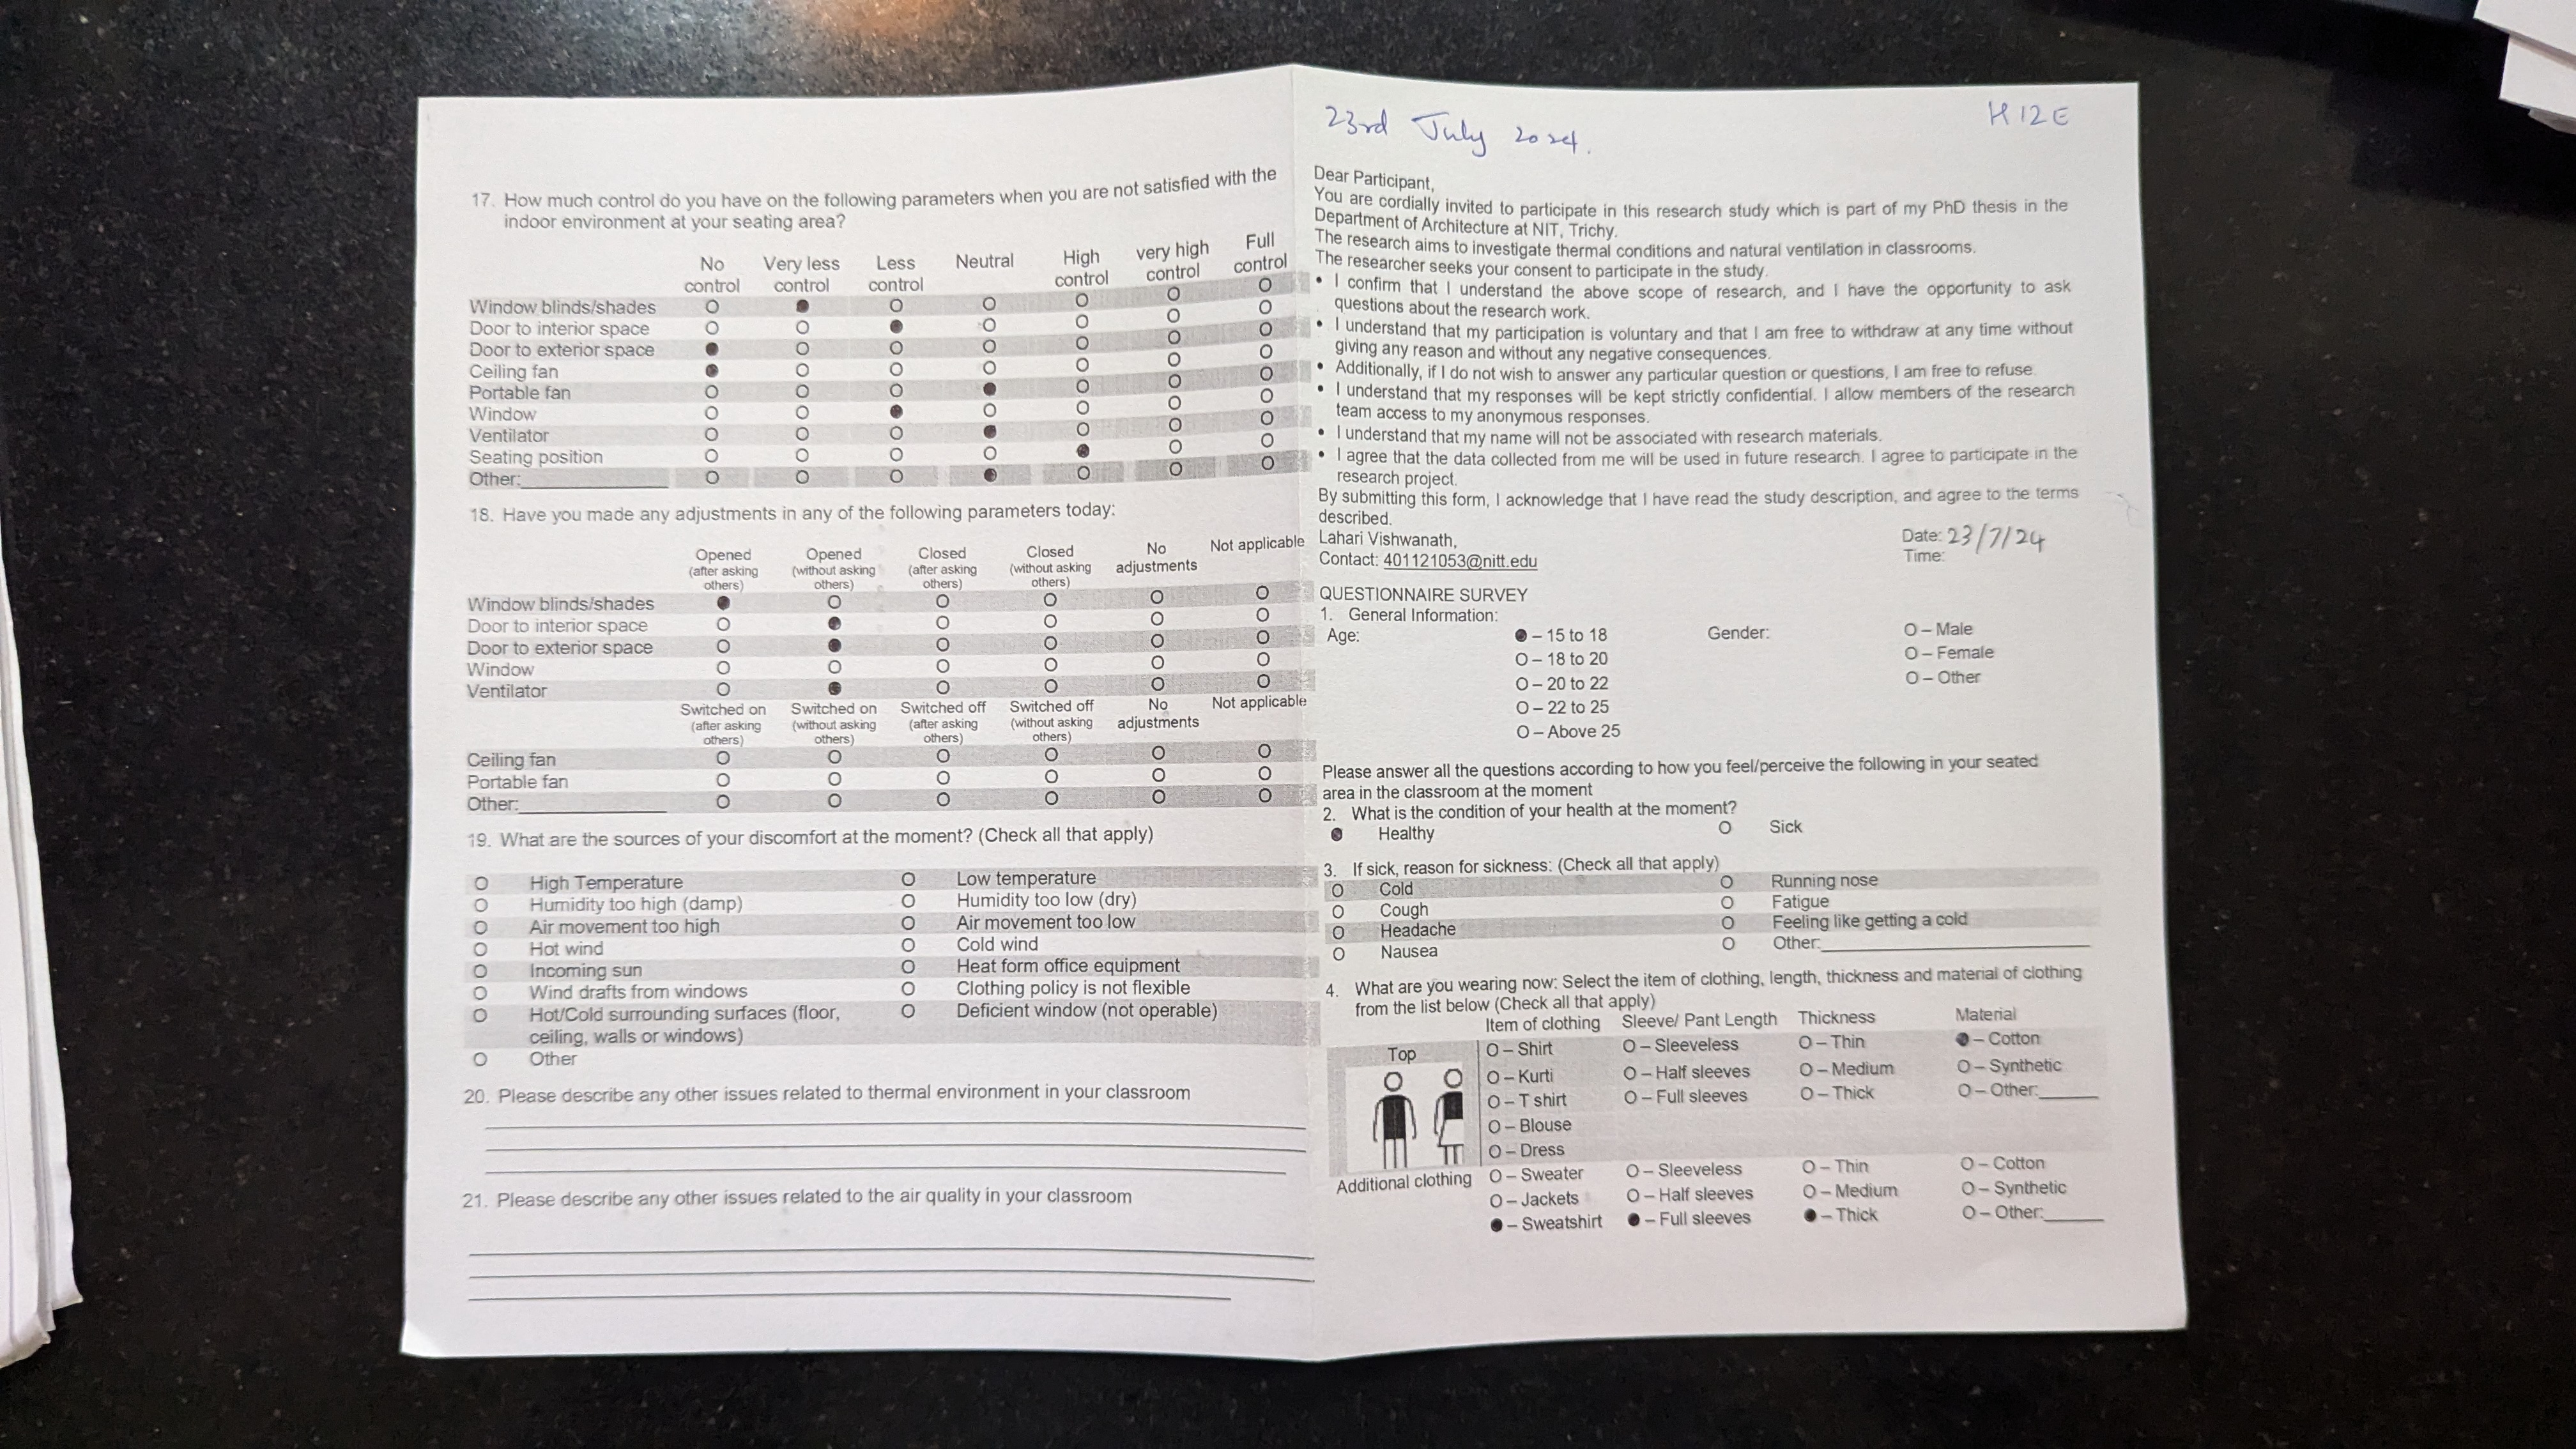 17. How much control do you have on the following parameters when you are not satisfied with the
indoor environment at your seating area?
No control Very less control Less control Neutral High control very high control Full control
Window blinds/shades O ● O O O O O
Door to interior space O O ● O O O O
Door to exterior space ● O O O O O O
Ceiling fan ● O O O O O O
Portable fan O O O ● O O O
Window O O ● O O O O
Ventilator O O O ● O O O
Seating position O O O O ● O O
Other:__________ O O O ● O O O
18. Have you made any adjustments in any of the following parameters today:
Opened (after asking others) Opened (without asking others) Closed (after asking others) Closed (without asking others) No adjustments Not applicable
Window blinds/shades ● O O O O O
Door to interior space O ● O O O O
Door to exterior space O ● O O O O
Window O O O O O O
Ventilator O ● O O O O
Switched on (after asking others) Switched on (without asking others) Switched off (after asking others) Switched off (without asking others) No adjustments Not applicable
Ceiling fan O O O O O O
Portable fan O O O O O O
Other:__________ O O O O O O
19. What are the sources of your discomfort at the moment? (Check all that apply)
O High Temperature O Low temperature
O Humidity too high (damp) O Humidity too low (dry)
O Air movement too high O Air movement too low
O Hot wind O Cold wind
O Incoming sun O Heat form office equipment
O Wind drafts from windows O Clothing policy is not flexible
O Hot/Cold surrounding surfaces (floor, O Deficient window (not operable)
ceiling, walls or windows)
O Other
20. Please describe any other issues related to thermal environment in your classroom
21. Please describe any other issues related to the air quality in your classroom
23rd July 2024. H12E
Dear Participant,
You are cordially invited to participate in this research study which is part of my PhD thesis in the
Department of Architecture at NIT, Trichy.
The research aims to investigate thermal conditions and natural ventilation in classrooms.
The researcher seeks your consent to participate in the study.
• I confirm that I understand the above scope of research, and I have the opportunity to ask
questions about the research work.
• I understand that my participation is voluntary and that I am free to withdraw at any time without
giving any reason and without any negative consequences.
• Additionally, if I do not wish to answer any particular question or questions, I am free to refuse.
• I understand that my responses will be kept strictly confidential. I allow members of the research
team access to my anonymous responses.
• I understand that my name will not be associated with research materials.
• I agree that the data collected from me will be used in future research. I agree to participate in the
research project.
By submitting this form, I acknowledge that I have read the study description, and agree to the terms
described.
Lahari Vishwanath, Date: 23/7/24
Contact: 401121053@nitt.edu Time:
QUESTIONNAIRE SURVEY
1. General Information:
Age: ● – 15 to 18 Gender: O – Male
O – 18 to 20 O – Female
O – 20 to 22 O – Other
O – 22 to 25
O – Above 25
Please answer all the questions according to how you feel/perceive the following in your seated
area in the classroom at the moment
2. What is the condition of your health at the moment?
● Healthy O Sick
3. If sick, reason for sickness: (Check all that apply)
O Cold O Running nose
O Cough O Fatigue
O Headache O Feeling like getting a cold
O Nausea O Other:__________
4. What are you wearing now: Select the item of clothing, length, thickness and material of clothing
from the list below (Check all that apply)
Item of clothing Sleeve/ Pant Length Thickness Material
Top O – Shirt O – Sleeveless O – Thin ● – Cotton
O – Kurti O – Half sleeves O – Medium O – Synthetic
O – T shirt O – Full sleeves O – Thick O – Other:______
O – Blouse
O – Dress
Additional clothing O – Sweater O – Sleeveless O – Thin O – Cotton
O – Jackets O – Half sleeves O – Medium O – Synthetic
● – Sweatshirt ● – Full sleeves ● – Thick O – Other:______